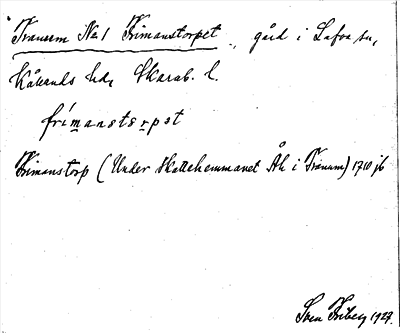 Tranum No 1 Frimanstorpet, gård i Lafva sn,
Kållands hd, Skarab. l.
frímanstorpet
Frimanstorp (Under Skattehemmanet Åh i Tranum) 1710 jb
Sven Friberg 1927.